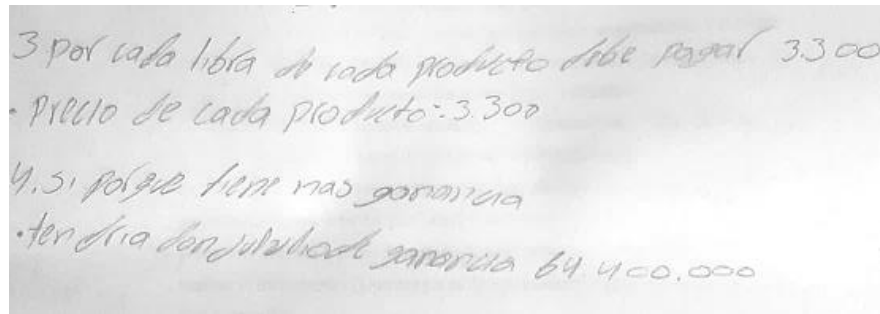 3 por cada libra de cada producto debe pagar 3.300
• Precio de cada producto: 3.300
4. Si porque tiene mas ganancia
• tendria don ganancia 64.400.000